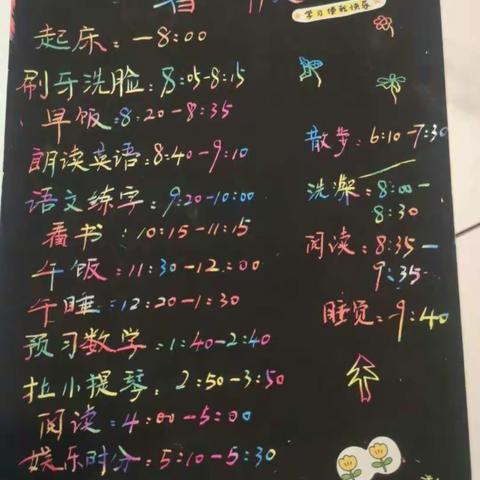 学习使我快乐
起床：-8:00
刷牙洗脸：8:05-8:15
早饭：8:20-8:35
朗读英语：8:40-9:10
语文练字：9:20-10:00
看书：10:15-11:15
午饭：11:30-12:00
午睡：12:20-1:30
预习数学：1:40-2:40
拉小提琴：2:50-3:50
阅读：4:00-5:00
娱乐时分：5:10-5:30
散步：6:10-7:30
洗澡：8:00-
8:30
阅读：8:35-
9:35
睡觉：9:40